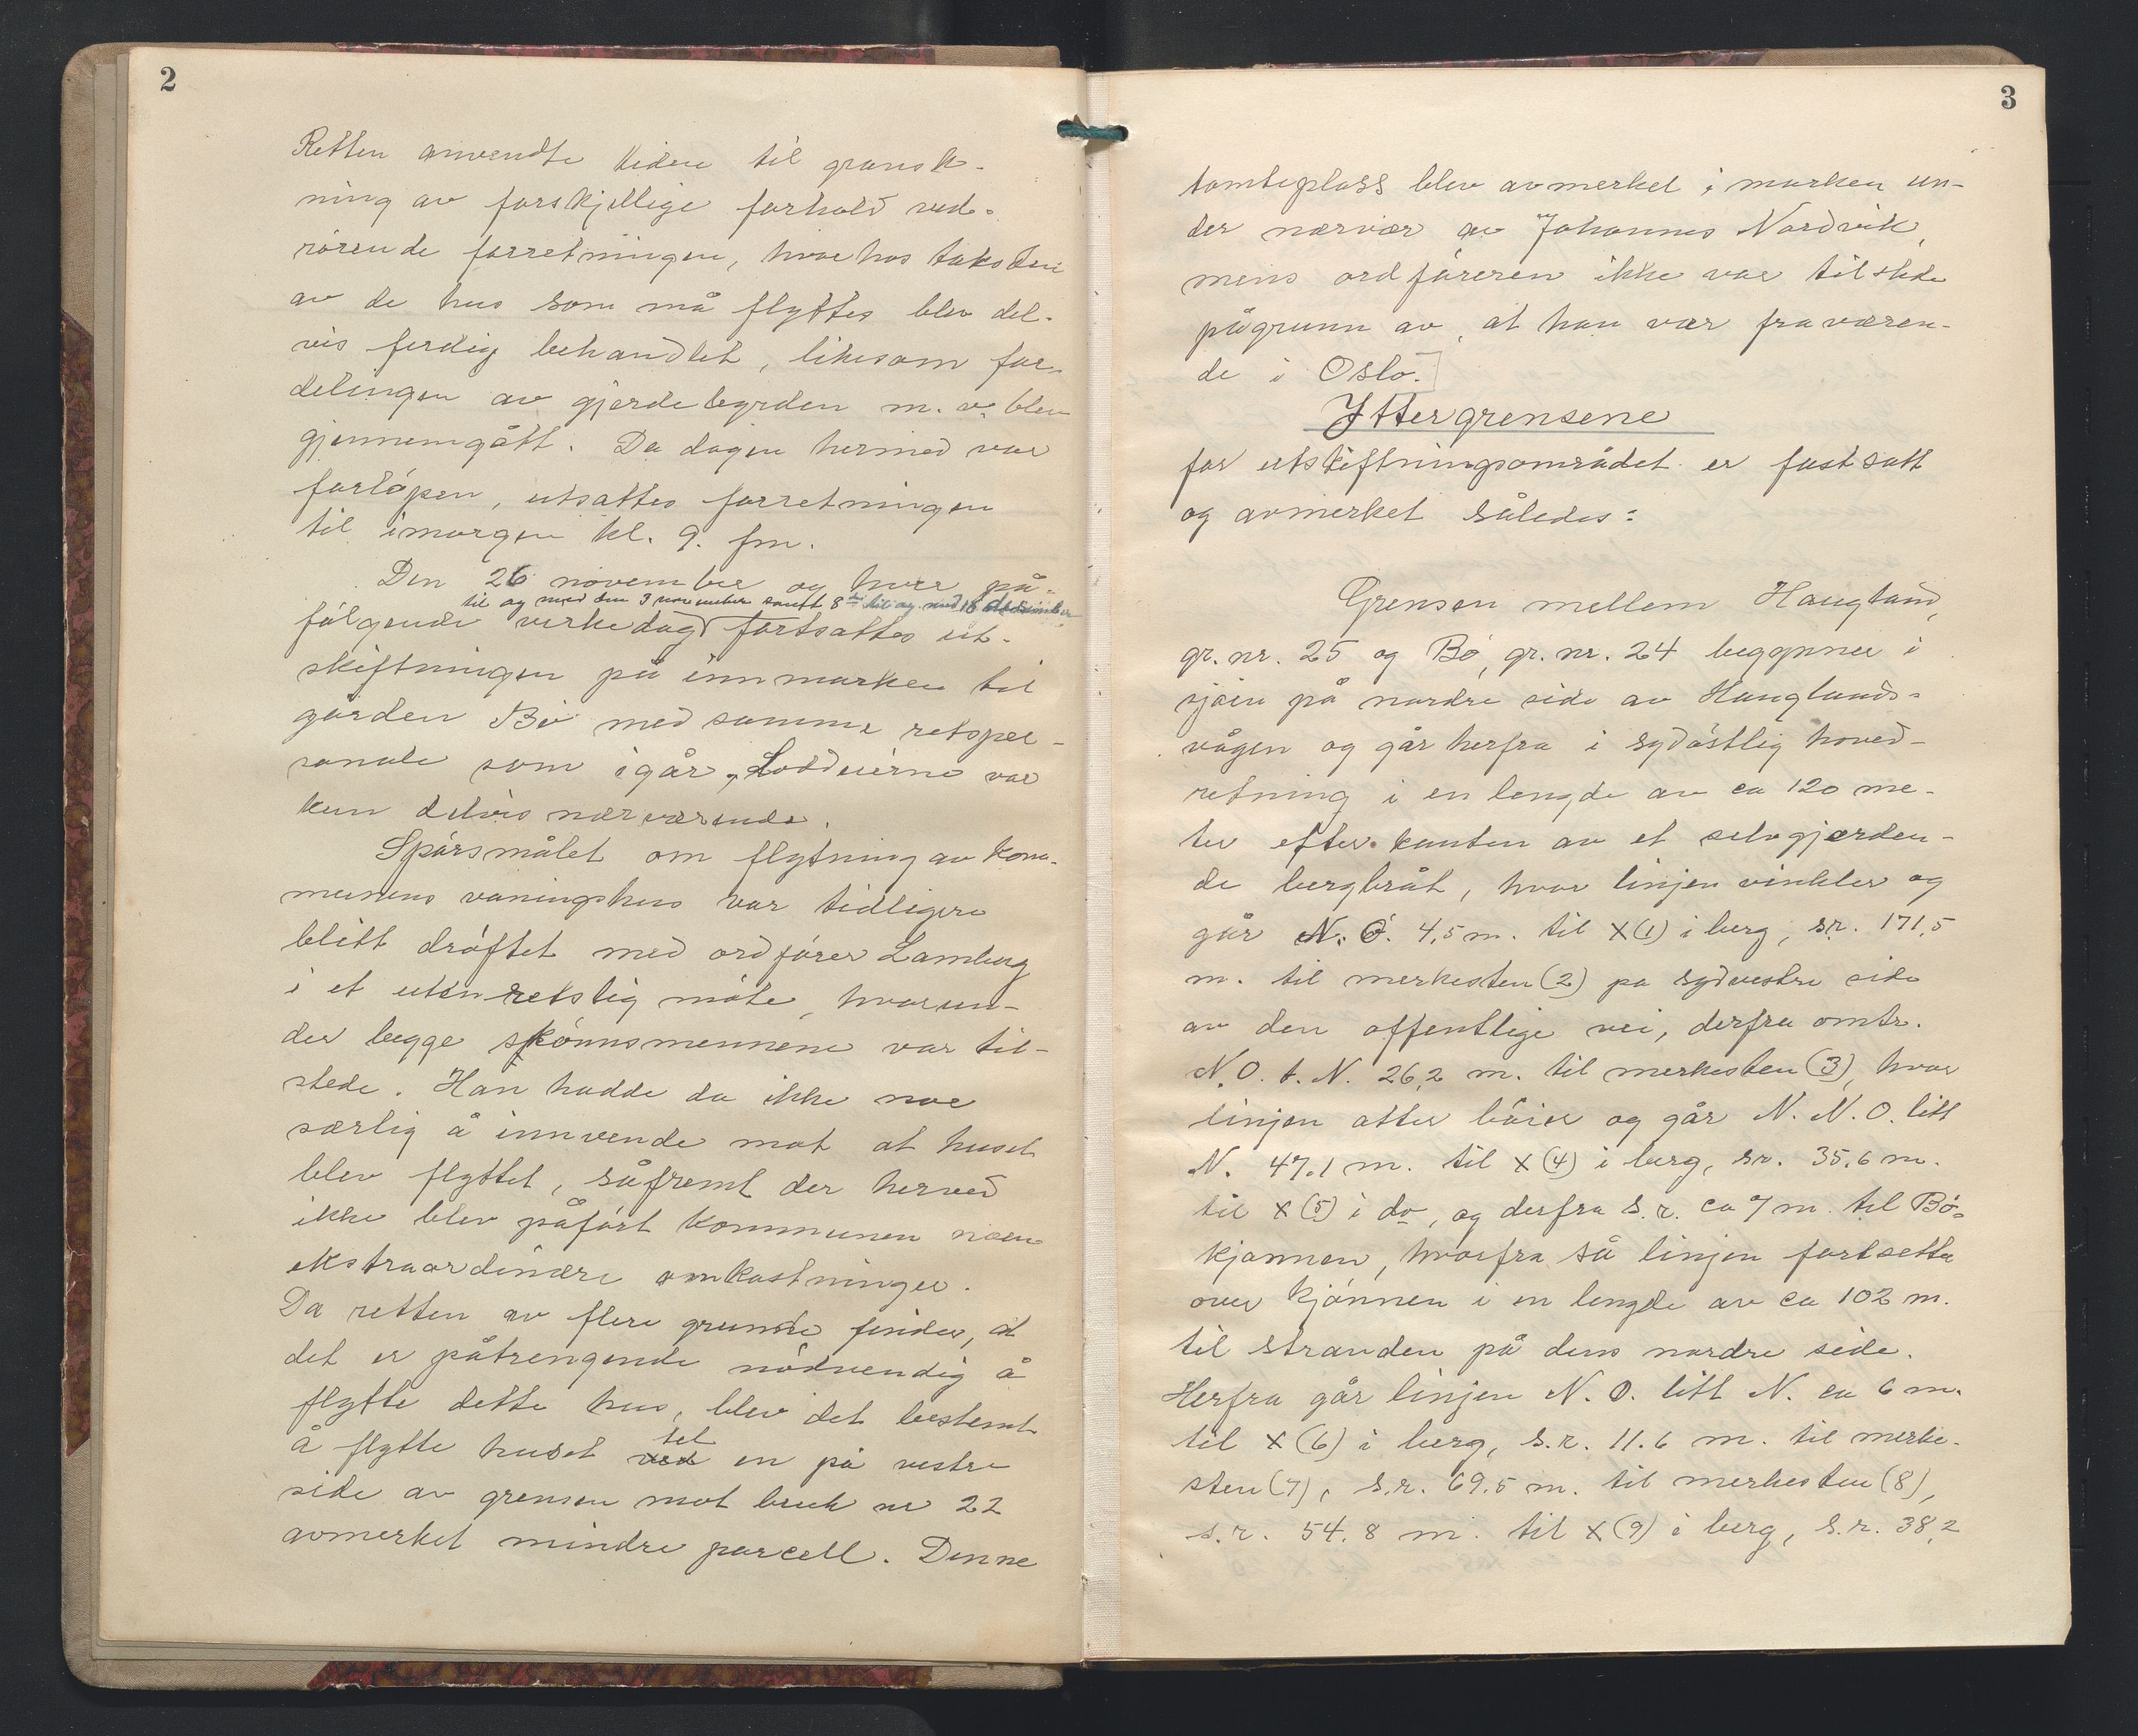 2
Retten anvendte tiden til gransk-
ning av forskjellige forhold ved-
rörende forretningen, hvorhos taksten
av de hus som må flyttes blev del-
vis ferdig behandlet, likesom for-
delingen av gjerdebyrden m. v. blev
gjennemgått. Da dagen hermed var
forlöpen, utsattes forretningen
til imorgen kl. 9. fm.
Den 26 november og hver på-
til og med den 3 november samt 8de til og med 18 desember
fölgende virkedag fortsattes ut-
skiftningen på innmarken til
gården Bö med samme retsper-
sonale som igår. Loddeierne var
kun delvis nærværende.
Spörsmålet om flytning av kom-
munens våningshus var tidligere
blitt dröftet med ordförer Lamberg
i et utenretslig möte, hvorun-
der begge skönnsmennene var til-
stede. Han hadde da ikke noe
særlig å innvende mot at huset
blev flyttet, såfremt der herved
ikke blev påfört kommunen noen
ekstraordinære omkostninger.
Da retten av flere grunde finder, at
det er påtrengende nödvendig å
flytte dette hus, blev det bestemt
til
å flytte huset ved en på vestre
side av grensen mot bruk nr 22
avmerket mindre parcell. Denne
3
tomteplass blev avmerket i marken un-
der nærvær av Johannes Nordvik,
mens ordföreren ikke var tilstede
pågrunn av, at han var fraværen-
de i Oslo.
Yttergrensene
for utskiftningsområdet er fastsatt
og avmerket således:
Grensen mellem Haugland,
gr. nr. 25 og Bö, gr. nr. 24 begynner i
sjöen på nordre side av Hauglands-
vågen og går herfra i sydöstlig hoved-
retning i en lengde av ca 120 me-
ter efter kanten av et selvgjerden-
de bergbråt, hvor linjen vinkler og
går N. Ö. 4,5 m. til X (1) i berg, s.r. 171,5
m. til merkesten (2) pa sydvestre side
av den offentlige vei, derfra omtr.
N. O. t. N. 26,2 m. til merkesten (3), hvor
linjen atter böier og går N. N. O. litt
N. 47.1 m. til X (4) i berg, s.r. 35.6 m.
til X (5) i do, og derfra s. r. ca 7 m. til Bö-
kjönnen, hvorfra så linjen fortsetter
over kjönnen i en lengde av ca 102 m.
til stranden på dens nordre side.
Herfra går linjen N. O. litt N. ca 6 m.
til X (6) i berg, s. r. 11.6 m. til merke-
sten (7), s. r. 69.5 m. til merkesten (8),
s. r. 54.8 m. til X (9) i berg, s. r. 38,2